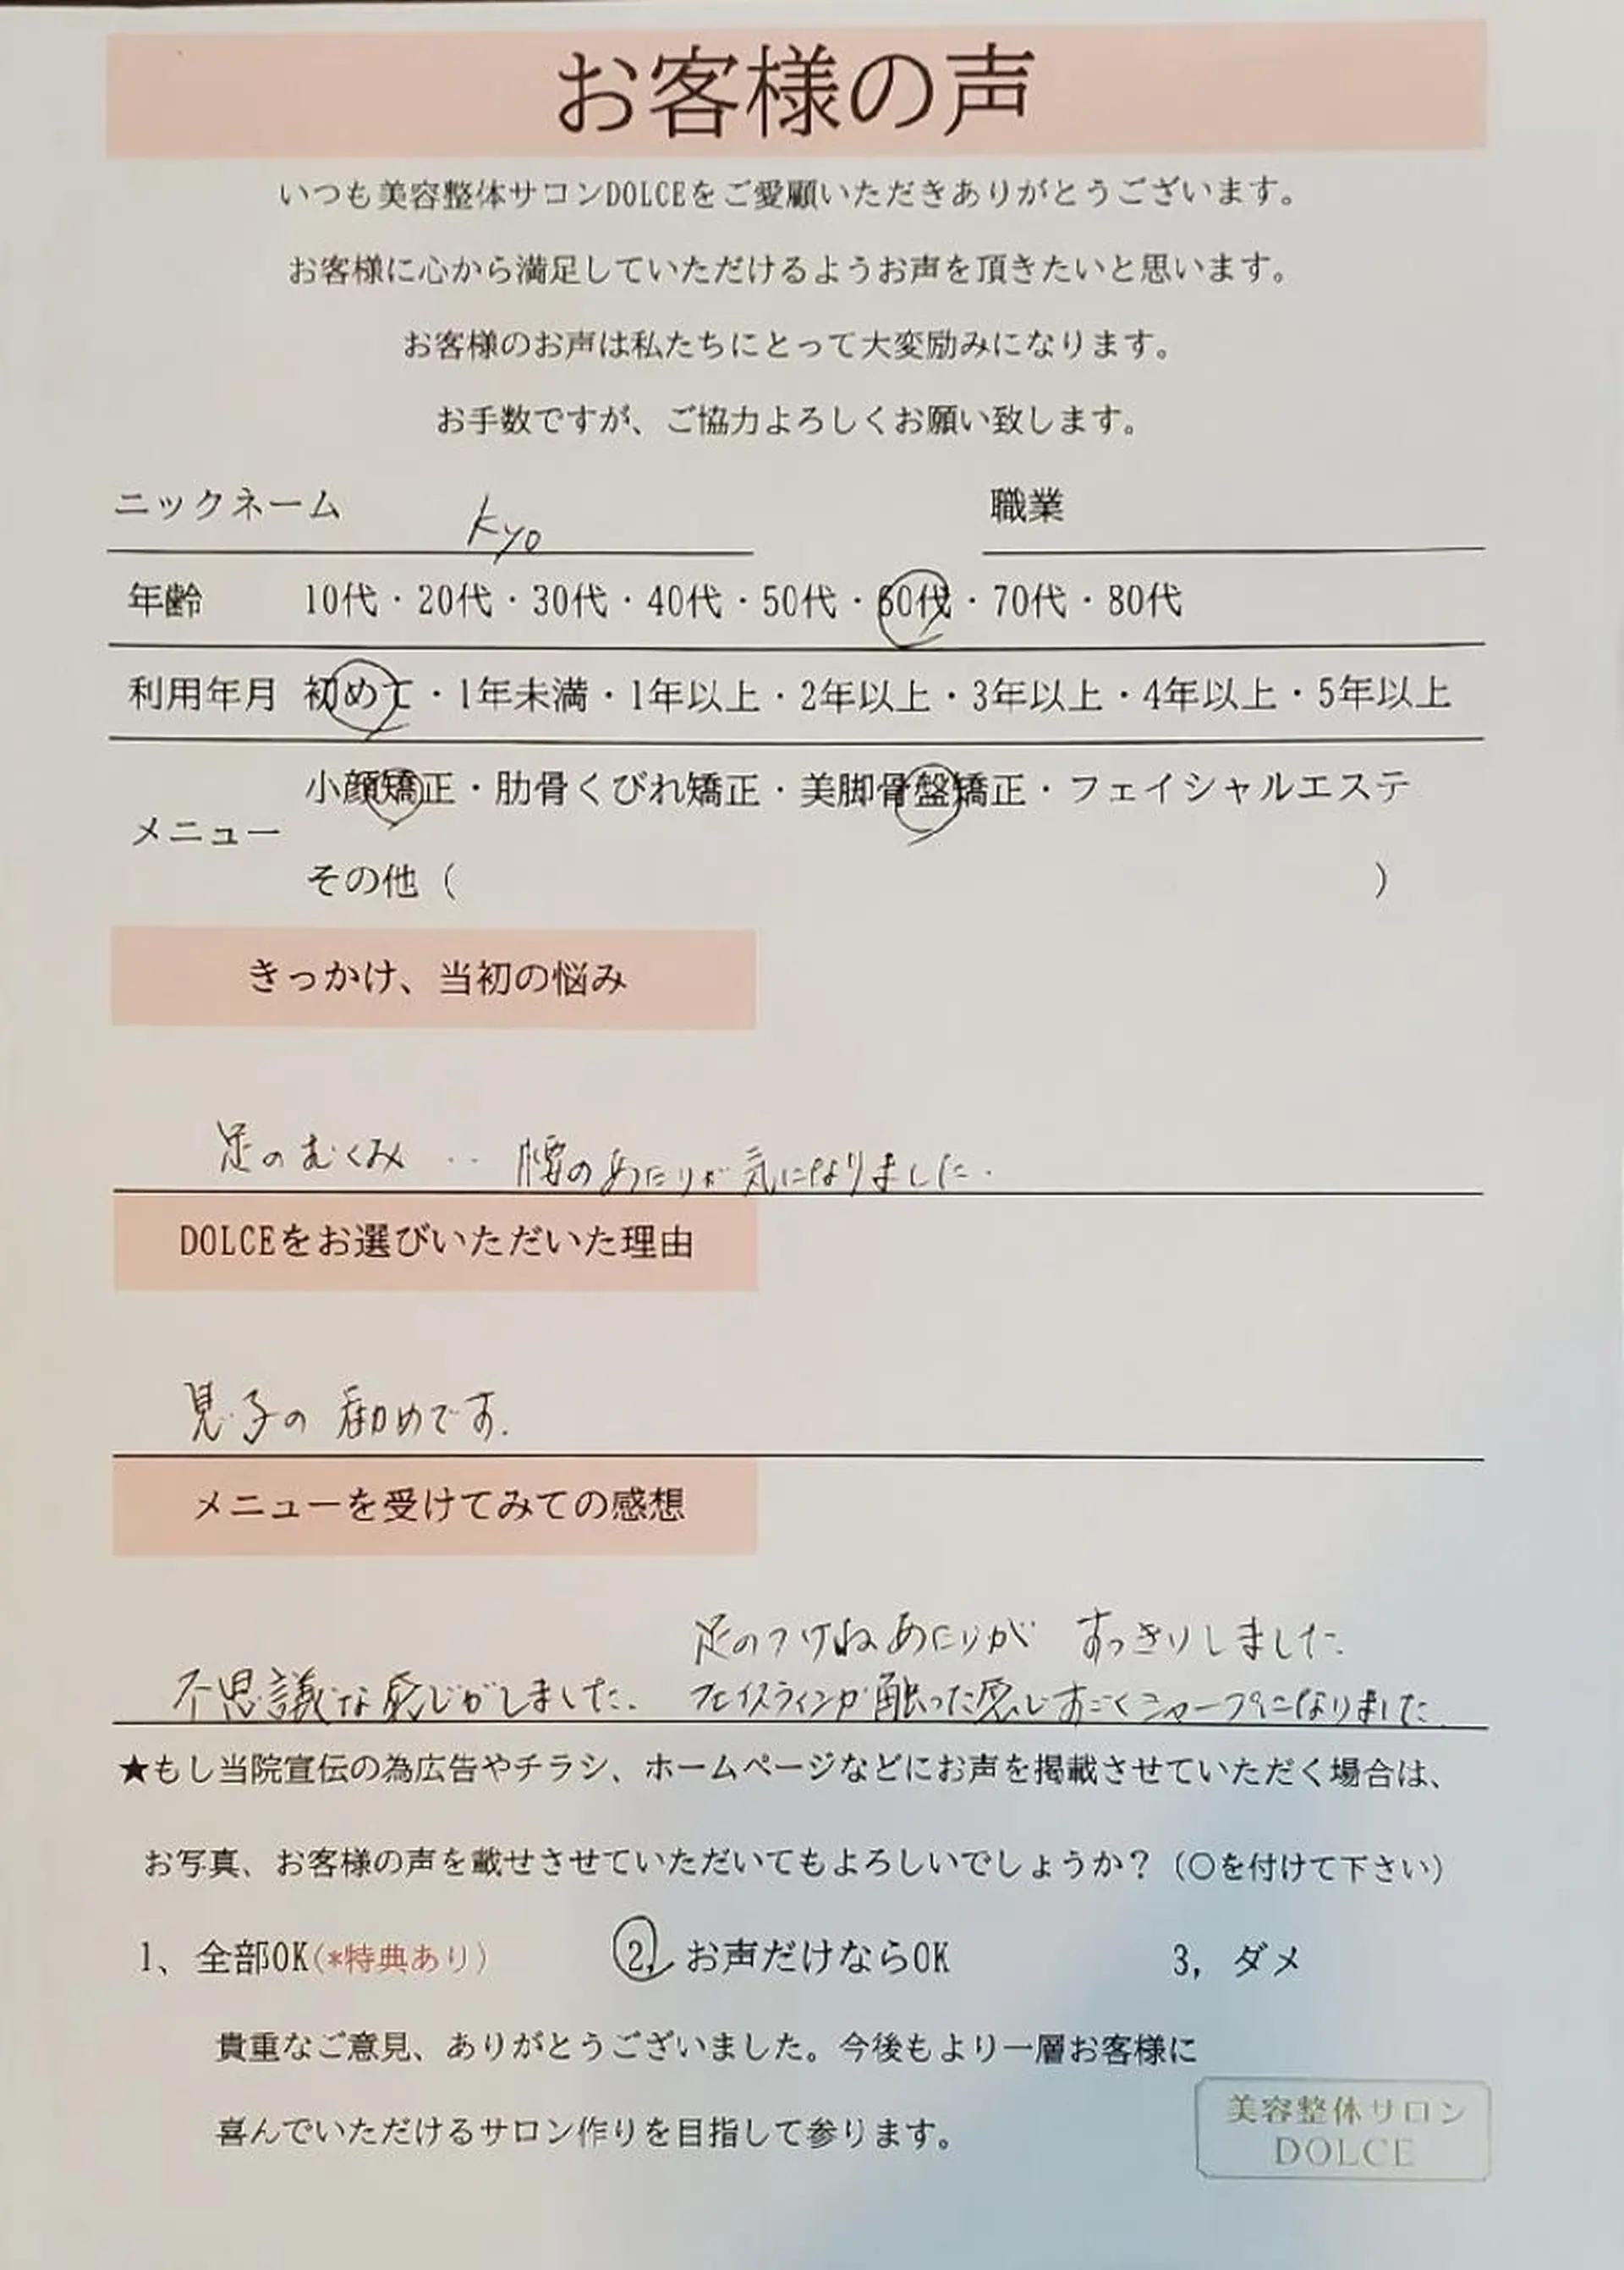 お客様の声
いつも美容整体サロンDOLCEをご愛顧いただきありがとうございます。
お客様に心から満足していただけるようお声を頂きたいと思います。
お客様のお声は私たちにとって大変励みになります。
お手数ですが、ご協力よろしくお願い致します。
ニックネーム kyo 職業
年齢 10代・20代・30代・40代・50代・60代・70代・80代
利用年月 初めて・1年未満・1年以上・2年以上・3年以上・4年以上・5年以上
小顔矯正・肋骨くびれ矯正・美脚骨盤矯正・フェイシャルエステ
メニュー
その他（ ）
きっかけ、当初の悩み
足のむくみ ‥ 腰のあたりが気になりました.
DOLCEをお選びいただいた理由
息子の勧めです.
メニューを受けてみての感想
足のつけねあたりが すっきりしました.
不思議な感じがしました. フェイスラインが触った感じすごくシャープになりました.
★もし当院宣伝の為広告やチラシ、ホームページなどにお声を掲載させていただく場合は、
お写真、お客様の声を載せさせていただいてもよろしいでしょうか？（〇を付けて下さい）
1、全部OK(*特典あり) 2, お声だけならOK 3, ダメ
貴重なご意見、ありがとうございました。今後もより一層お客様に
喜んでいただけるサロン作りを目指して参ります。
美容整体サロン
DOLCE